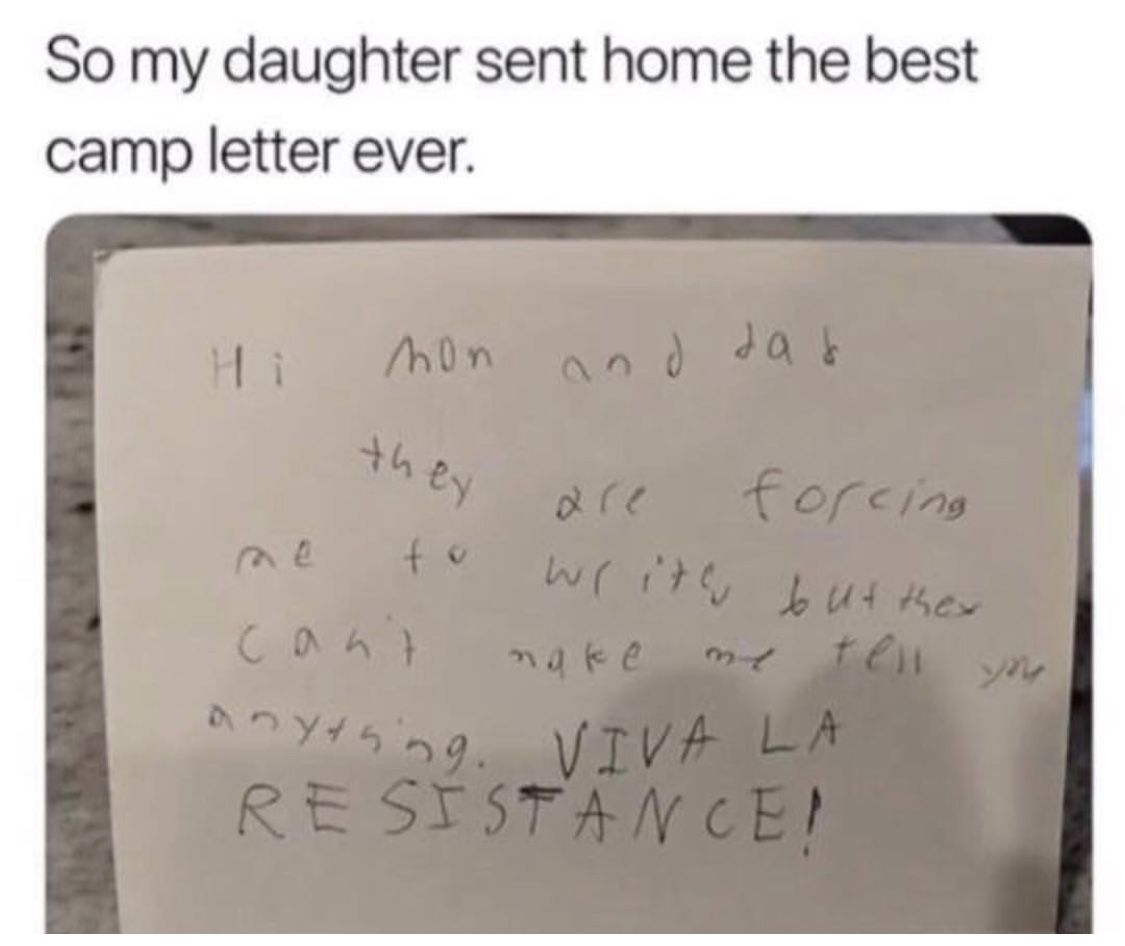 So my daughter sent home the best
camp letter ever.
Hi mom and dad
they are forcing
me to write but they
can't make me tell you
anything. VIVA LA
RESISTANCE!